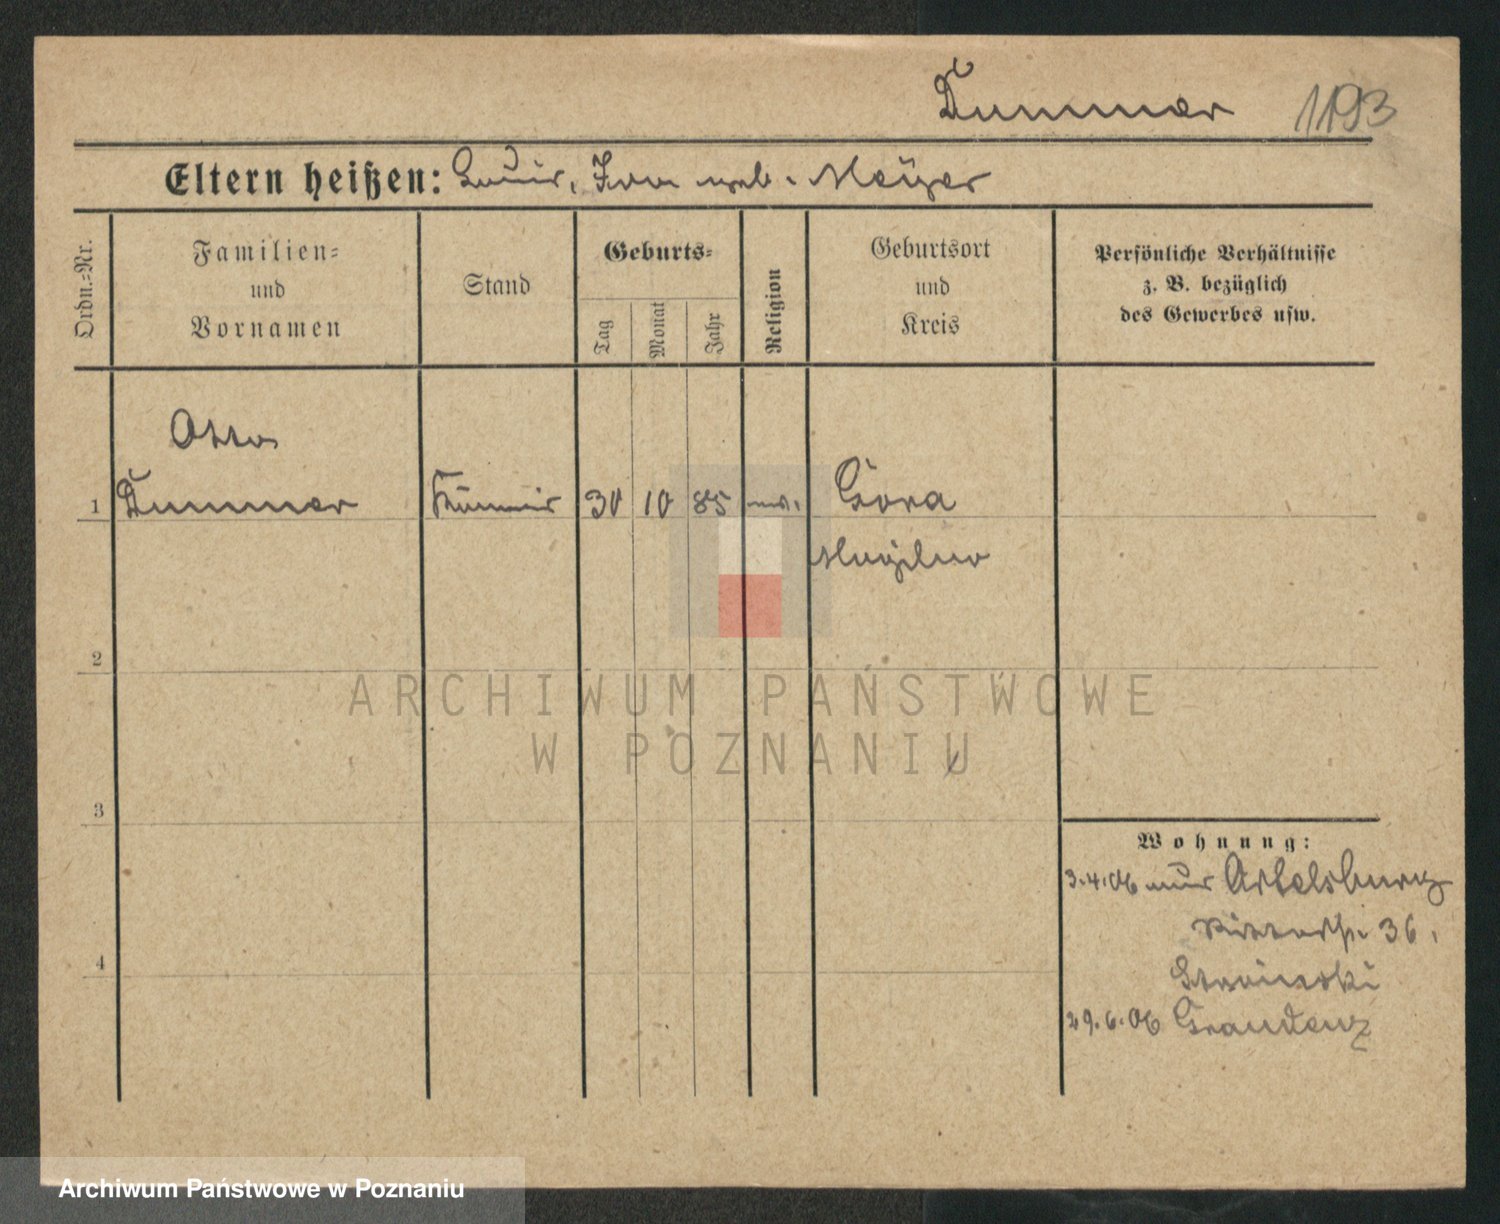 Dummer 1193
Eltern heißen: Louis, geb. Meÿer
Ordn.=Nr.
Familien=
und
Vornamen
Stand
Geburts=
Tag
Monat
Jahr
Religion
Geburtsort
und
Kreis
Persönliche Verhältnisse
z. B. bezüglich
des Gewerbes usw.
Otto
1 Dummer 30 10 85 Góra
Mogilno
2
3
4
Wohnung:
3.4.06 Ortelsburg
36.
29.6.06 Graudenz
ARCHIWUM PAŃSTWOWE
W POZNANIU
Archiwum Państwowe w Poznaniu